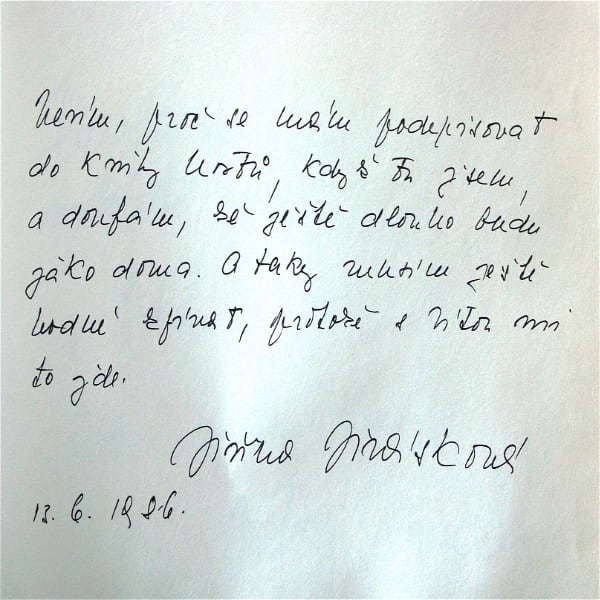 Nevím, proč se mám podepisovat
do Knihy hostů, když tu jsem,
a doufám, že ještě dlouho budu
jako doma. A taky musím ještě
hodně zpívat, protože s Vítou mi
to jde.
Jiřina Jirásková
13. 6. 1996.